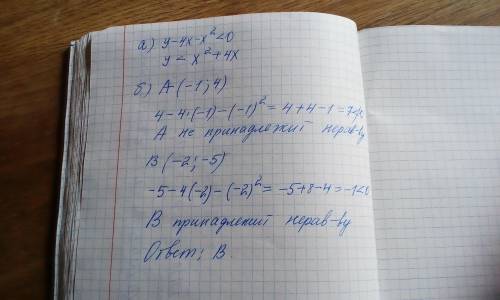 а) y-4x-x²<0
y < x²+4x
б) A (-1; 4)
4-4·(-1)-(-1)² = 4+4-1 = 7
A не принадлежит нерав-ву
B (-2; -5)
-5-4(-2)-(-2)² = -5+8-4 = -1<0
B принадлежит нерав-ву
Ответ: B.